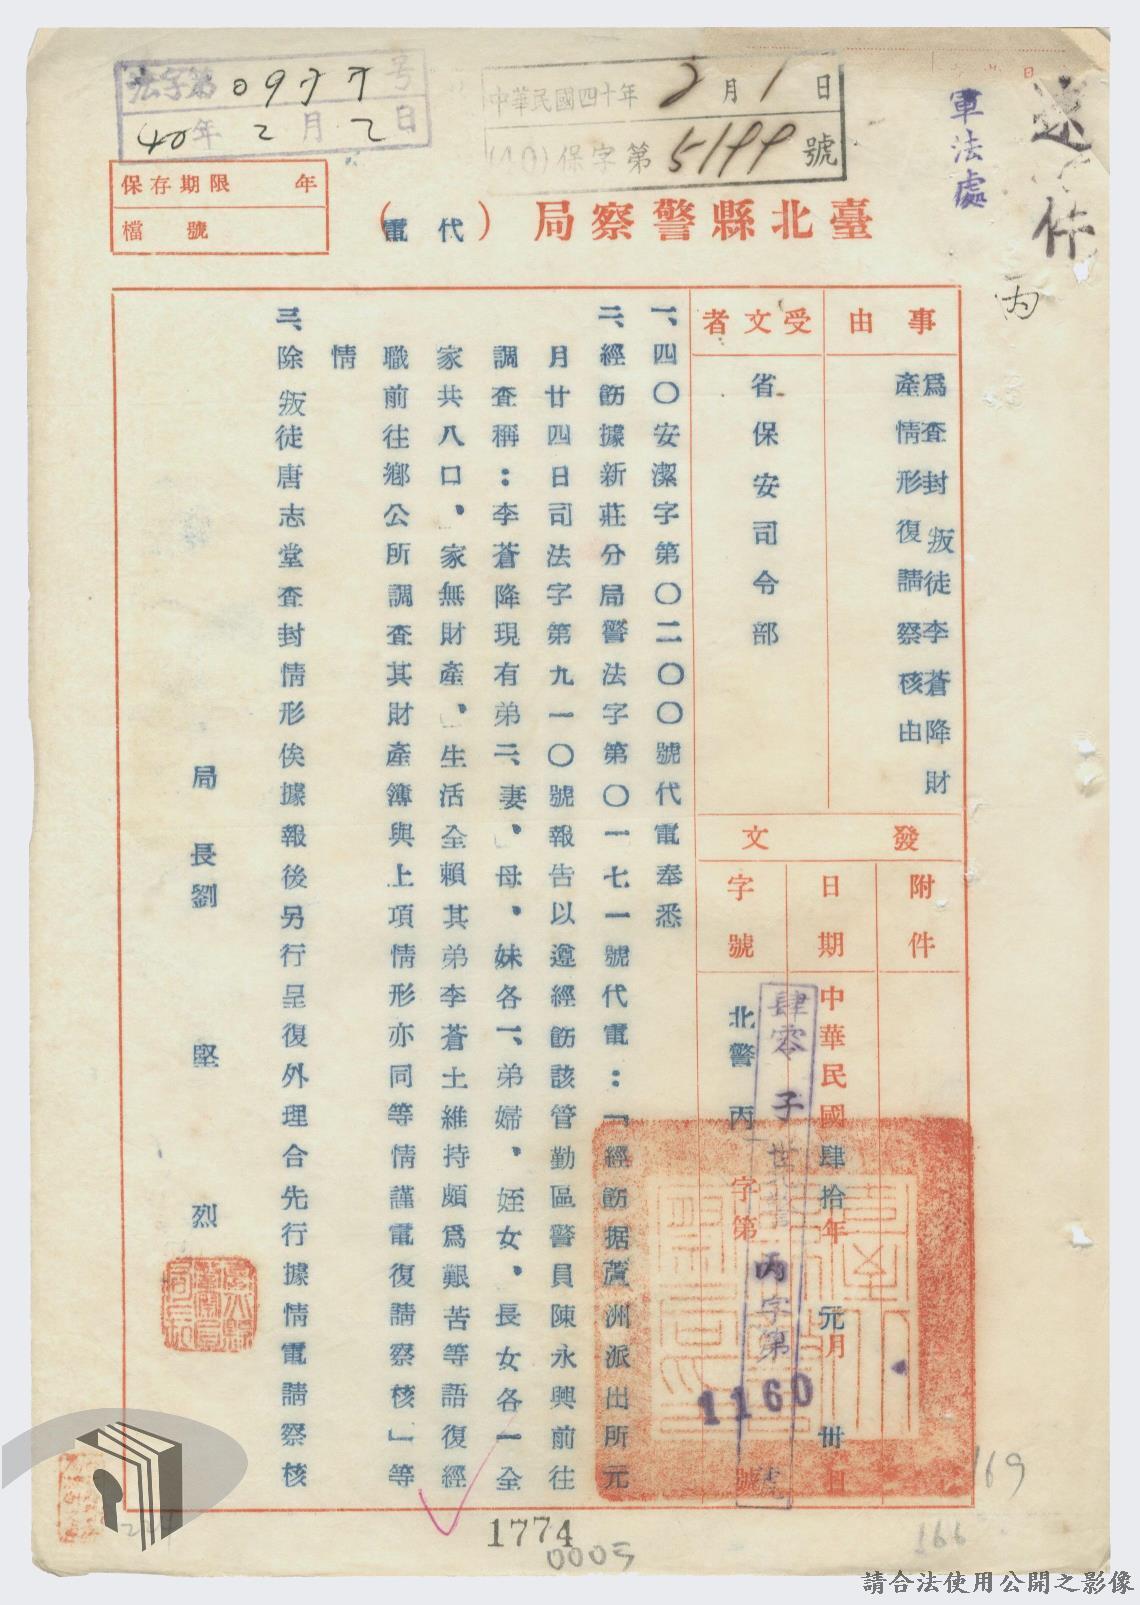 速件
丙
軍法處
中華民國四十年2月1日
(40)保字第5199號
法字第0977号
40年2月2日
保存期限 年
檔號
臺北縣警察局(代電)
事由
為查封叛徒李蒼降財
產情形復請察核由
受文者
省保安司令部
發文
附件
日期
中華民國肆拾年元月卅日
字號
北警丙字第號
肆零子
丙字第
1160
號
一、四〇安潔字第〇二〇〇號代電奉悉
二、經飭據新莊分局警法字第〇一七一號代電:「經飭据蘆洲派出所元
月廿四日司法字第九一〇號報告以遵經飭該管勤區警員陳永興前往
調查稱:李蒼降現有弟二、妻、母、妹各一、弟婦、姪女、長女各一全
家共八口、家無財產、生活全賴其弟李蒼土維持頗為艱苦等語復經
職前往鄉公所調查其財產簿與上項情形亦同等情謹電復請察核」等
情
三、除叛徒唐志堂查封情形俟據報後另行呈復外理合先行據情電請察核
局長劉堅烈
1774
0003
169
166
請合法使用公開之影像